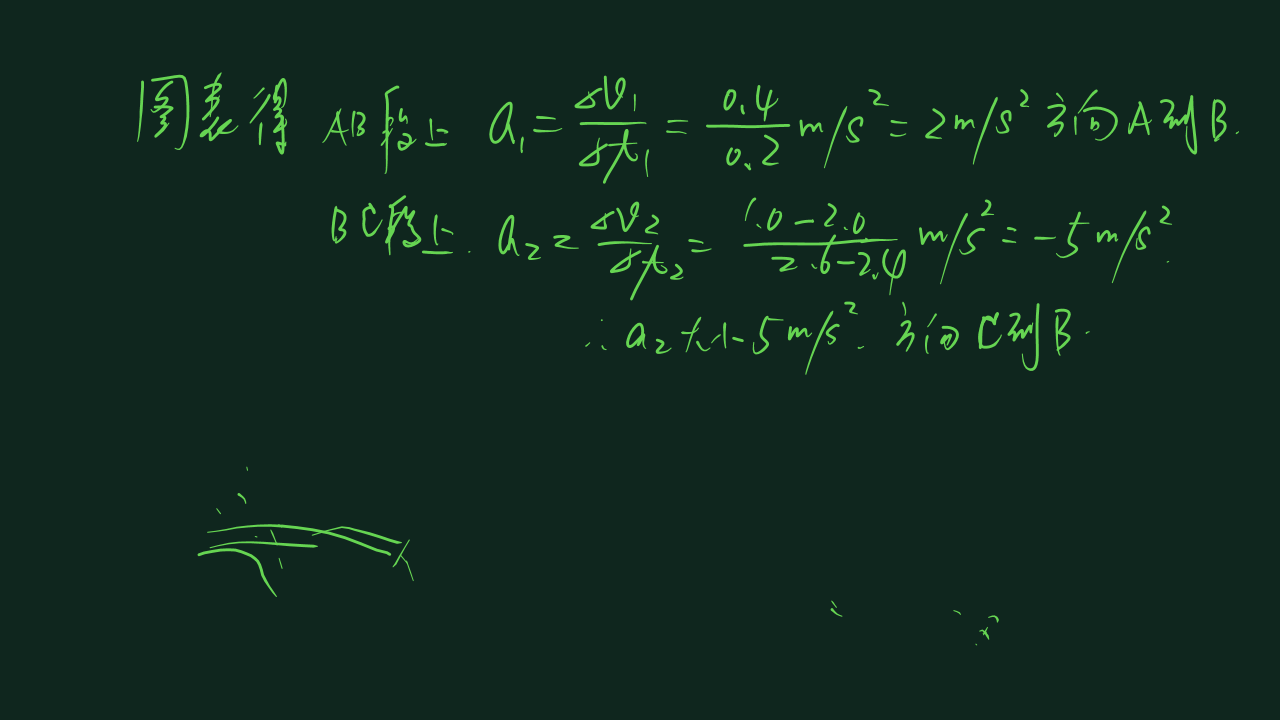 图表得 AB段上 a₁ = Δv₁/Δt₁ = 0.4/0.2 m/s² = 2m/s² 方向A到B.
BC段上. a₂ = Δv₂/Δt₂ = 1.0-2.0/2.6-2.4 m/s² = -5m/s².
∴ a₂大小5m/s². 方向C到B.